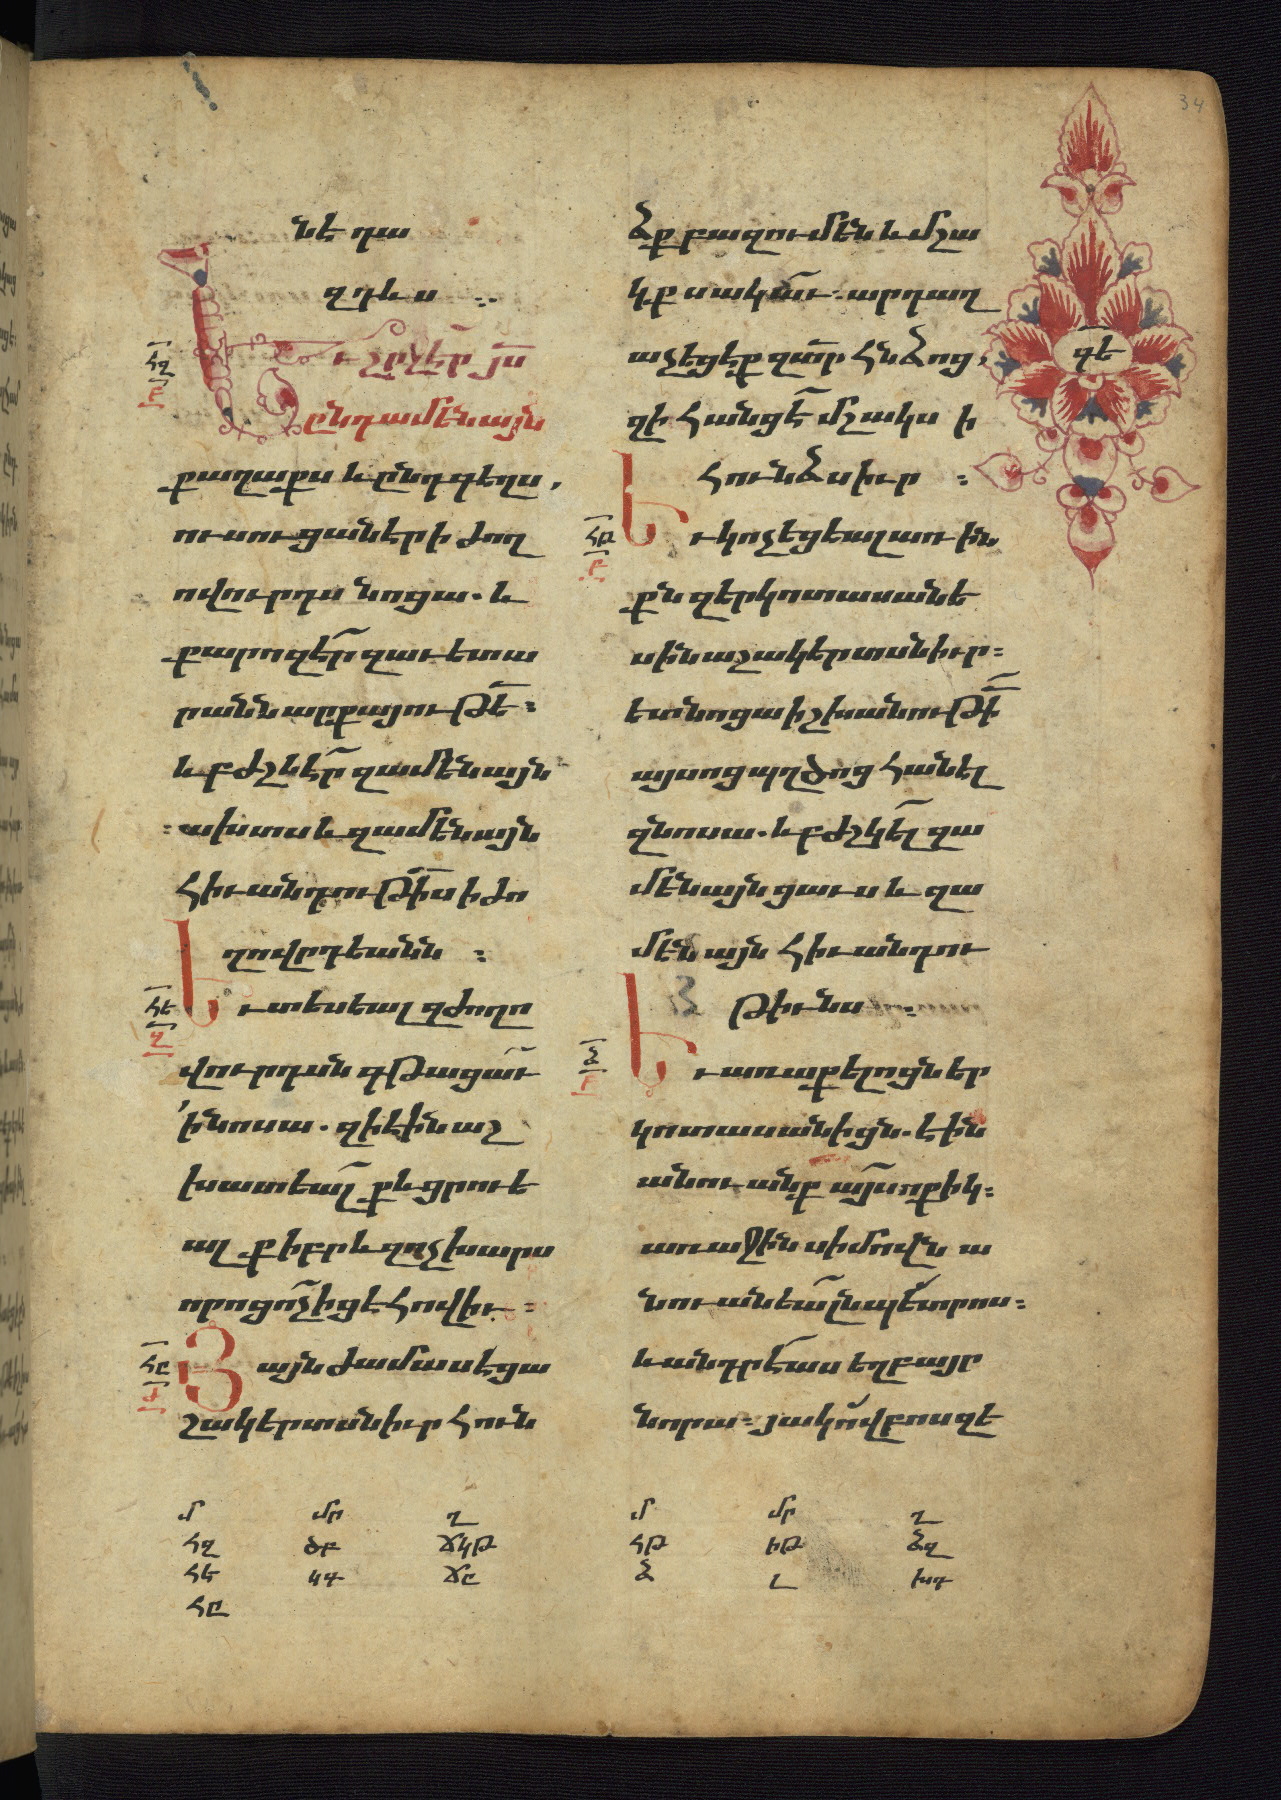 34
նէ դա
զդևս ։
հզ
Եւ շրջէր յս̅
ընդ ամենայն
քաղաքս և ընդ գեղս,
ուսուցանէր ի ժող
ովուրդս նոցա. և
քարոզէր զաւետա
րանն արքայութե̅։
և բժշկէր զամենայն
։ախտս և զամենայն
հիւանդութի̅ս ի ժո
ղովըդեանն ։
հե
զ
Եւ տեսեալ զժողո
վուրդսն գթացաւ
ի նոսա. զի էին աշ
խատեալ քև ցրուե
ալ քիբրև զոչխարս
որոց ո̅չ իցէ հովիւ ։
հը
Յայնժամ ասէ ցա
շակերտսն իւր հուն
ձք բազում են և մշա
կք սակաւ. արդ աղ
աչեցէք զտր̅ հնձոց,
գե
զի հանցէ մշակս ի
հունձս իւր ։
հթ
բ
Եւ կոչեցեալ առ ին
քն զերկոտասանե
սին աշակերտսն իւր։
ետ նոցա իշխանութի̅
այսոց պղծոց հանել
զնոսա. և բժշկել զա
մենայն ցաւս և զա
մենայն հիւանդու
թիւնս ։
ձ
բ
Եւ առաքելոցն եր
կոտասանիցն. էին
անուանք այսոքիկ։
առաջին սիմովն ա
նուանեալն պետրոս։
և անդրէաս եղբայր
նորա։ յակովբոս զէ
մ մր ղ
հզ ծբ ճկթ
հե կգ ճը
հը
մ մր ղ
հթ իթ ձզ
ձ լ խդ